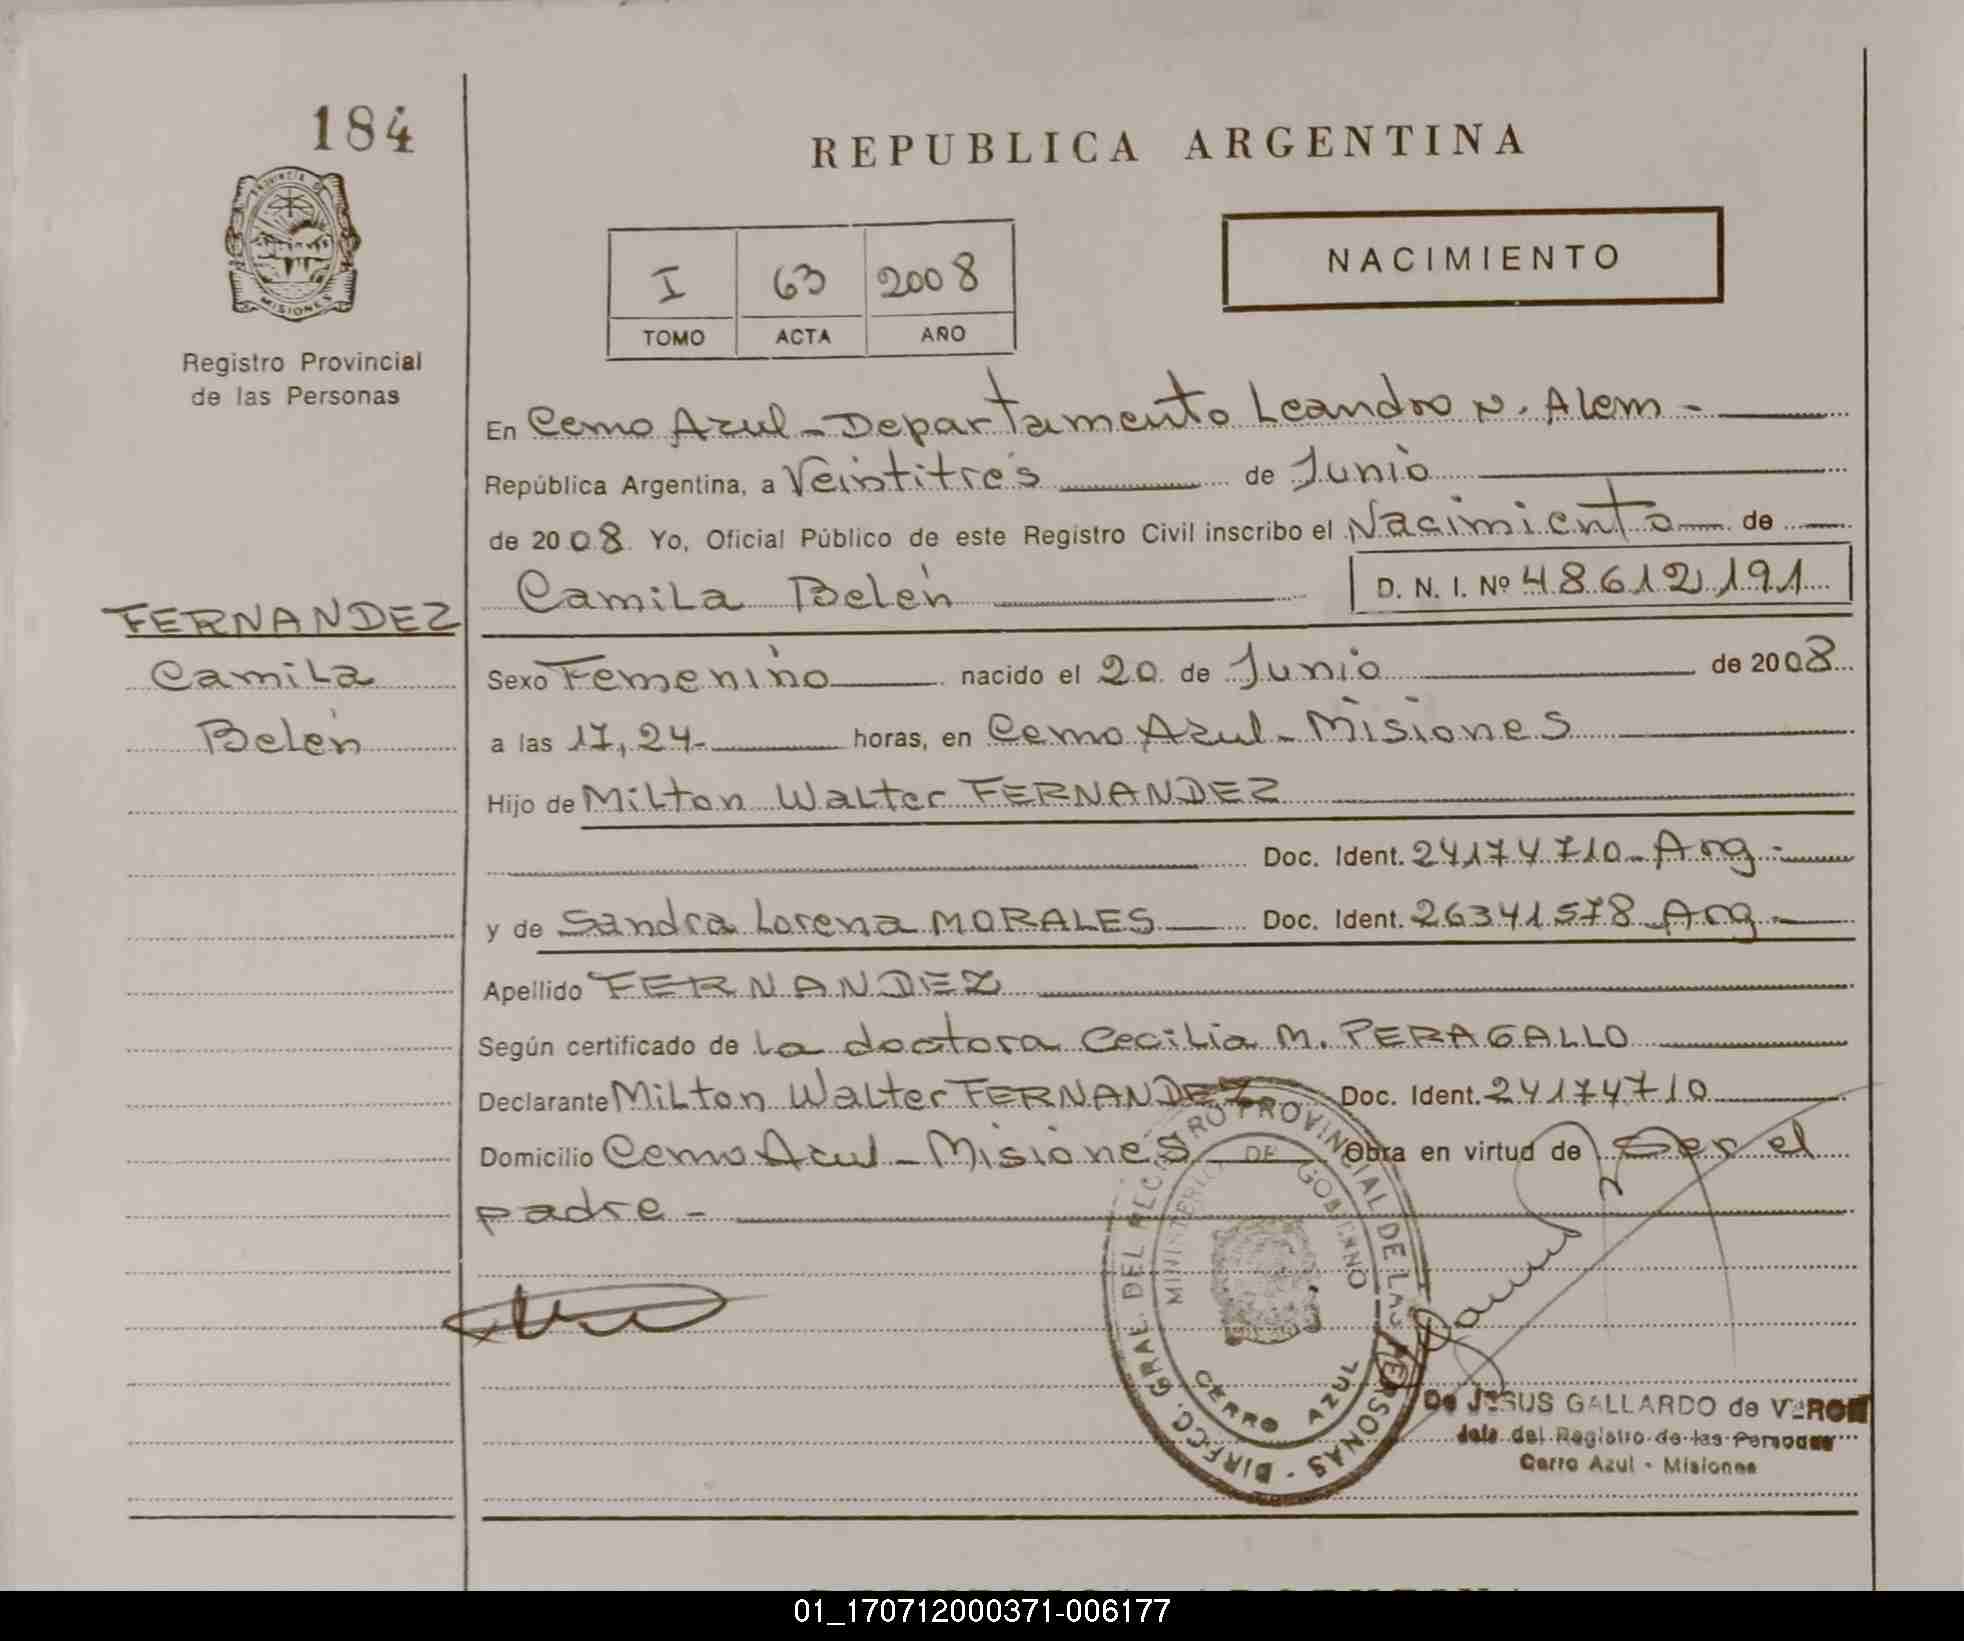 184
PROVINCIA DE
MISIONES
Registro Provincial
de las Personas
REPUBLICA ARGENTINA
I 63 2008
TOMO ACTA AÑO
NACIMIENTO
En Cerro Azul - Departamento Leandro N. Alem -
República Argentina, a Veintitrés de Junio
de 2008 Yo, Oficial Público de este Registro Civil inscribo el Nacimiento de
Camila Belén D. N. I. Nº 48612191
FERNANDEZ
Camila
Belén
Sexo Femenino nacido el 20 de Junio de 2008
a las 17,24- horas, en Cerro Azul - Misiones
Hijo de Milton Walter FERNANDEZ
Doc. Ident. 24174710 - Arg -
y de Sandra Lorena MORALES Doc. Ident. 26341578 Arg -
Apellido FERNANDEZ
Según certificado de la doctora Cecilia M. PERAGALLO
Declarante Milton Walter FERNANDEZ Doc. Ident. 24174710
Domicilio Cerro Azul - Misiones Obra en virtud de ser el
padre -
DIRECC. GRAL. DEL REGISTRO PROVINCIAL DE LAS PERSONAS -
MINISTERIO DE GOBIERNO
CERRO AZUL
De JESUS GALLARDO de
Jefe del Registro de las Personas
Cerro Azul - Misiones
01_170712000371-006177